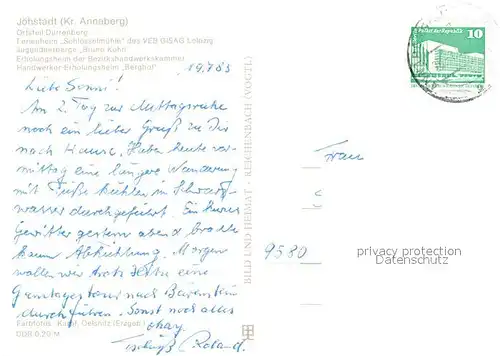 Jöhstadt (Kr. Annaberg)
Ortsteil Dürrenberg
Ferienheim „Schlösselmühle" des VEB GISAG Leipzig
Jugendherberge „Bruno Kühn"
Erholungsheim der Bezirkshandwerkskammer
Handwerker-Erholungsheim "Berghof"
19.7.83
Liebe Sonni!
Am 2. Tag zur Mittagsruhe
noch ein lieber Gruß zu Dir
nach Hause. Haben heute vor-
mittag eine längere Wanderung
mit Füße kühlen im Schwarz-
wasser durchgeführt. Ein kurzes
Gewitter gestern abend brachte
kaum Abkühlung. Morgen
wollen wir trotz Hitze eine
Ganztagestour nach Bärenstein
durchführen. Sonst noch alles
okay.
Tschüß Roland.
Farbfotos: Kaipf, Oelsnitz (Erzgeb.)
DDR 0,20 M
BILD UND HEIMAT · REICHENBACH (VOGTL)
Palast der Republik
10
Frau
9580
privacy protection
www.ak-ansichtskarten.de